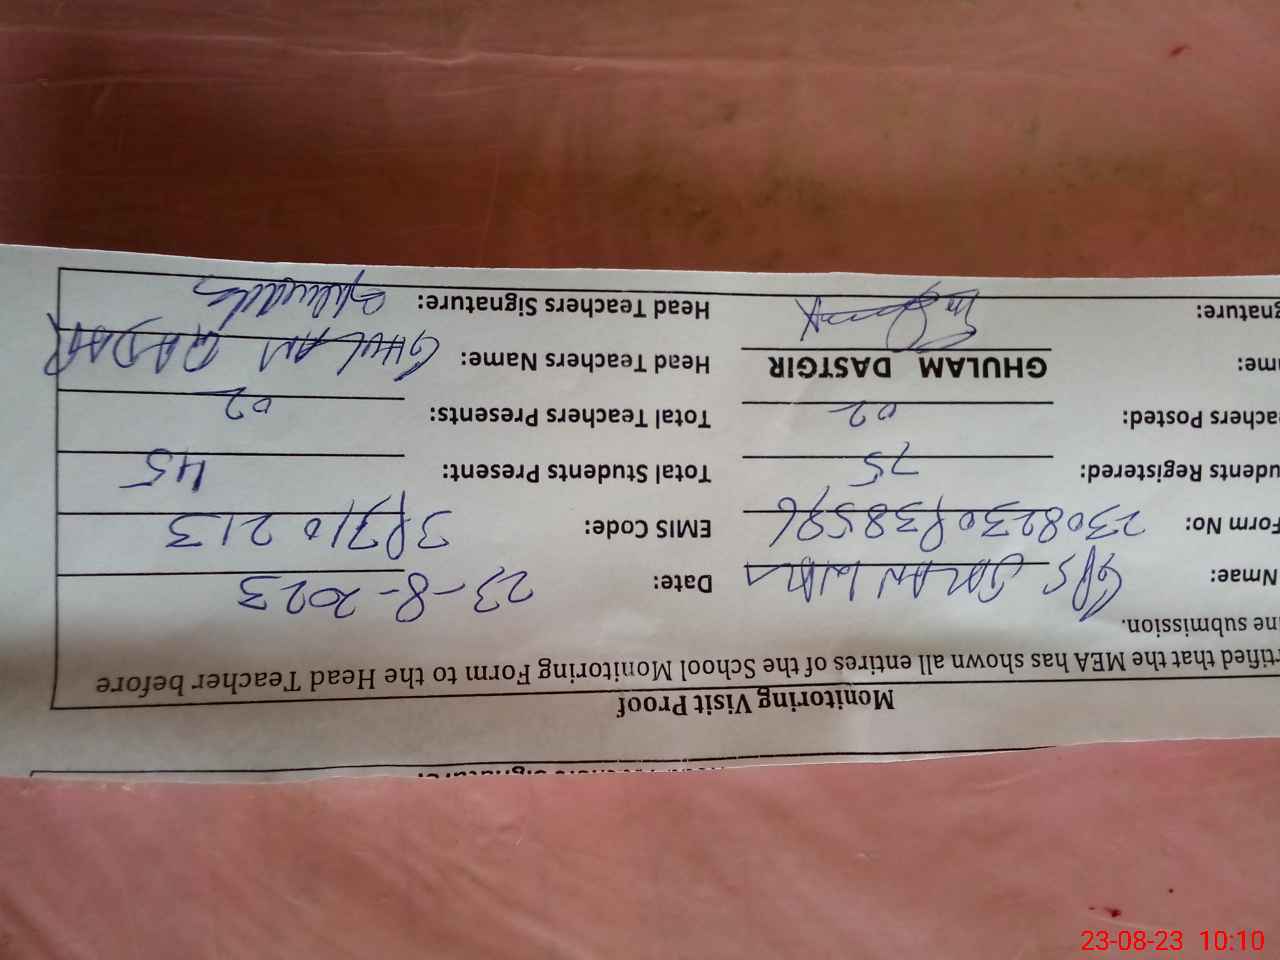 Monitoring Visit Proof
rtified that the MEA has shown all entires of the School Monitoring Form to the Head Teacher before
ne submission.
Nmae: GPS WALA Date: 23-8-2023
Form No: EMIS Code:
udents Registered: 75 Total Students Present: 45
achers Posted: 02 Total Teachers Presents: 02
me: GHULAM DASTGIR Head Teachers Name: GHULAM QADAR
gnature: Head Teachers Signature:
23-08-23 10:10